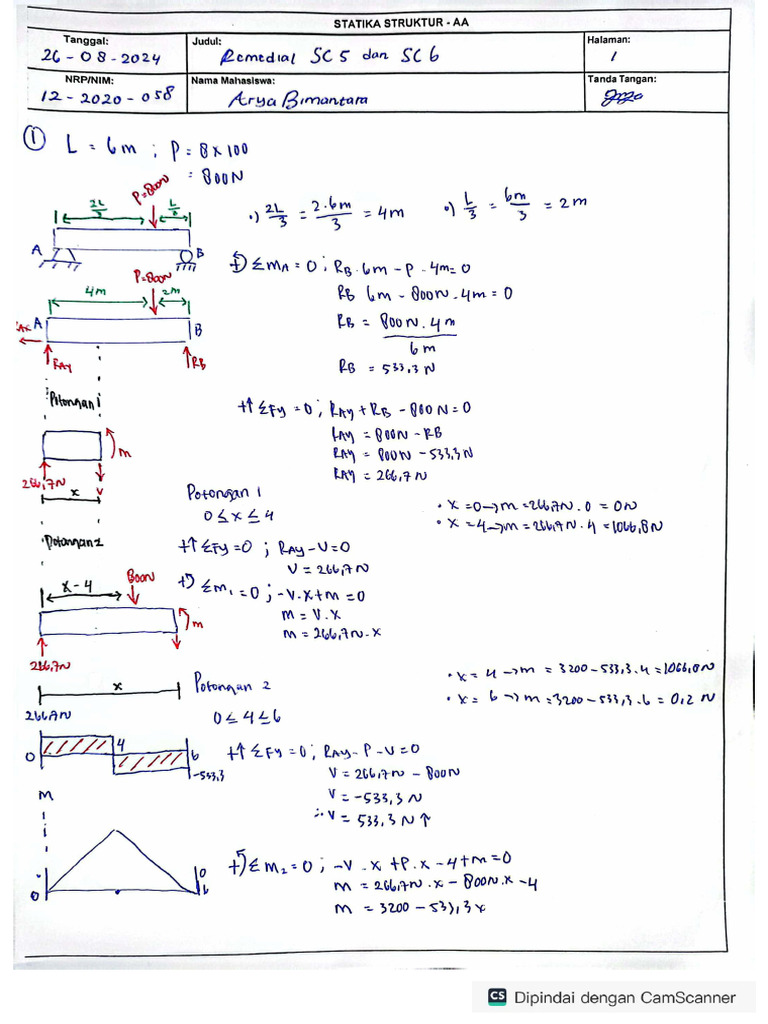 STATIKA STRUKTUR - AA
Tanggal:
26 - 08 - 2024
Judul:
Remedial SC 5 dan SC 6
Halaman:
1
NRP/NIM:
12 - 2020 - 058
Nama Mahasiswa:
Arya Bimantara
Tanda Tangan:
① L = 6m ; P = 8 x 100
= 800N
P=800N
2L/3 L/3
A B
•) 2L/3 = 2.6m/3 = 4m •) L/3 = 6m/3 = 2m
P=800N
4m 2m
A B
RAy RB
+↺ ΣMA = 0 ; RB . 6m - P . 4m = 0
RB 6m - 800N . 4m = 0
RB = 800N . 4m / 6m
RB = 533,3 N
Potongan 1
M
266,7N
V
x
+↑ ΣFy = 0 ; RAy + RB - 800N = 0
RAy = 800N - RB
RAy = 800N - 533,3N
RAy = 266,7N
Potongan 1
0 ≤ x ≤ 4
• x = 0 → m = 266,7N . 0 = 0N
• x = 4 → m = 266,7N . 4 = 1066,8N
+↑ ΣFy = 0 ; RAy - V = 0
V = 266,7N
+↺ ΣM1 = 0 ; -V.x + m = 0
m = V.x
m = 266,7N.x
Potongan 2
x - 4
800N
M
266,7N
x
Potongan 2
0 ≤ 4 ≤ 6
• x = 4 → m = 3200 - 533,3 . 4 = 1066,8N
• x = 6 → m = 3200 - 533,3 . 6 = 0,2 N
266,7N
0 4 6
-533,3
+↑ ΣFy = 0 ; RAy - P - V = 0
V = 266,7N - 800N
V = -533,3 N
∴ V = 533,3 N ↑
M
0 0
6
+↺ ΣM2 = 0 ; -V . x + P . x - 4 + m = 0
m = 266,7N . x - 800N . x - 4
m = 3200 - 533,3x
CS Dipindai dengan CamScanner